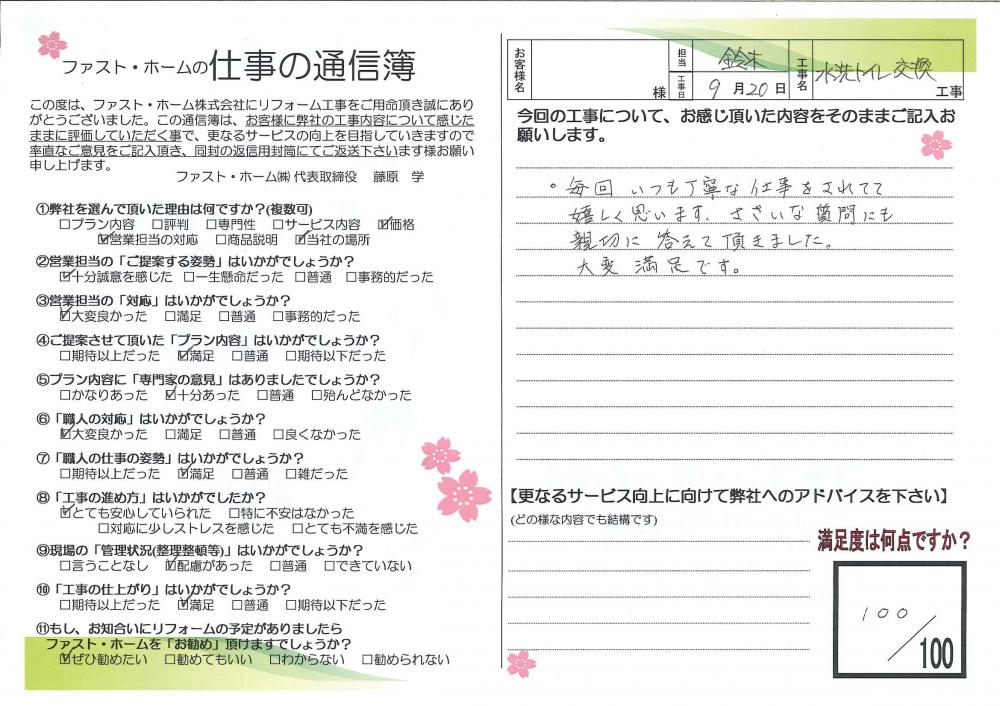 ファスト・ホームの仕事の通信簿
この度は、ファスト・ホーム株式会社にリフォーム工事をご用命頂き誠にあり
がとうございました。この通信簿は、お客様に弊社の工事内容について感じた
ままに評価していただく事で、更なるサービスの向上を目指していきますので
率直なご意見をご記入頂き、同封の返信用封筒にてご返送下さいます様お願い
申し上げます。
ファスト・ホーム㈱ 代表取締役 藤原 学
①弊社を選んで頂いた理由は何ですか?(複数可)
□プラン内容 □評判 □専門性 □サービス内容 ☑価格
☑営業担当の対応 □商品説明 ☑当社の場所
②営業担当の「ご提案する姿勢」はいかがでしょうか?
☑十分誠意を感じた □一生懸命だった □普通 □事務的だった
③営業担当の「対応」はいかがでしょうか?
☑大変良かった □満足 □普通 □事務的だった
④ご提案させて頂いた「プラン内容」はいかがでしょうか?
□期待以上だった ☑満足 □普通 □期待以下だった
⑤プラン内容に「専門家の意見」はありましたでしょうか?
□かなりあった ☑十分あった □普通 □殆んどなかった
⑥「職人の対応」はいかがでしょうか?
☑大変良かった □満足 □普通 □良くなかった
⑦「職人の仕事の姿勢」はいかがでしょうか?
□期待以上だった ☑満足 □普通 □雑だった
⑧「工事の進め方」はいかがでしたか?
☑とても安心していられた □特に不安はなかった
□対応に少しストレスを感じた □とても不満を感じた
⑨現場の「管理状況(整理整頓等)」はいかがでしょうか?
□言うことなし ☑配慮があった □普通 □できていない
⑩「工事の仕上がり」はいかがでしょうか?
□期待以上だった ☑満足 □普通 □期待以下だった
⑪もし、お知合いにリフォームの予定がありましたら
ファスト・ホームを「お勧め」頂けますでしょうか?
☑ぜひ勧めたい □勧めてもいい □わからない □勧められない
お客様名 様 担当 鈴木 工事名 水洗トイレ交換 工事
工事日 9月20日
今回の工事について、お感じ頂いた内容をそのままご記入お
願いします。
・毎回 いつも丁寧な仕事をされてて
嬉しく思います. ささいな質問にも
親切に 答えて頂きました。
大変満足です。
【更なるサービス向上に向けて弊社へのアドバイスを下さい】
(どの様な内容でも結構です)
満足度は何点ですか?
100/100